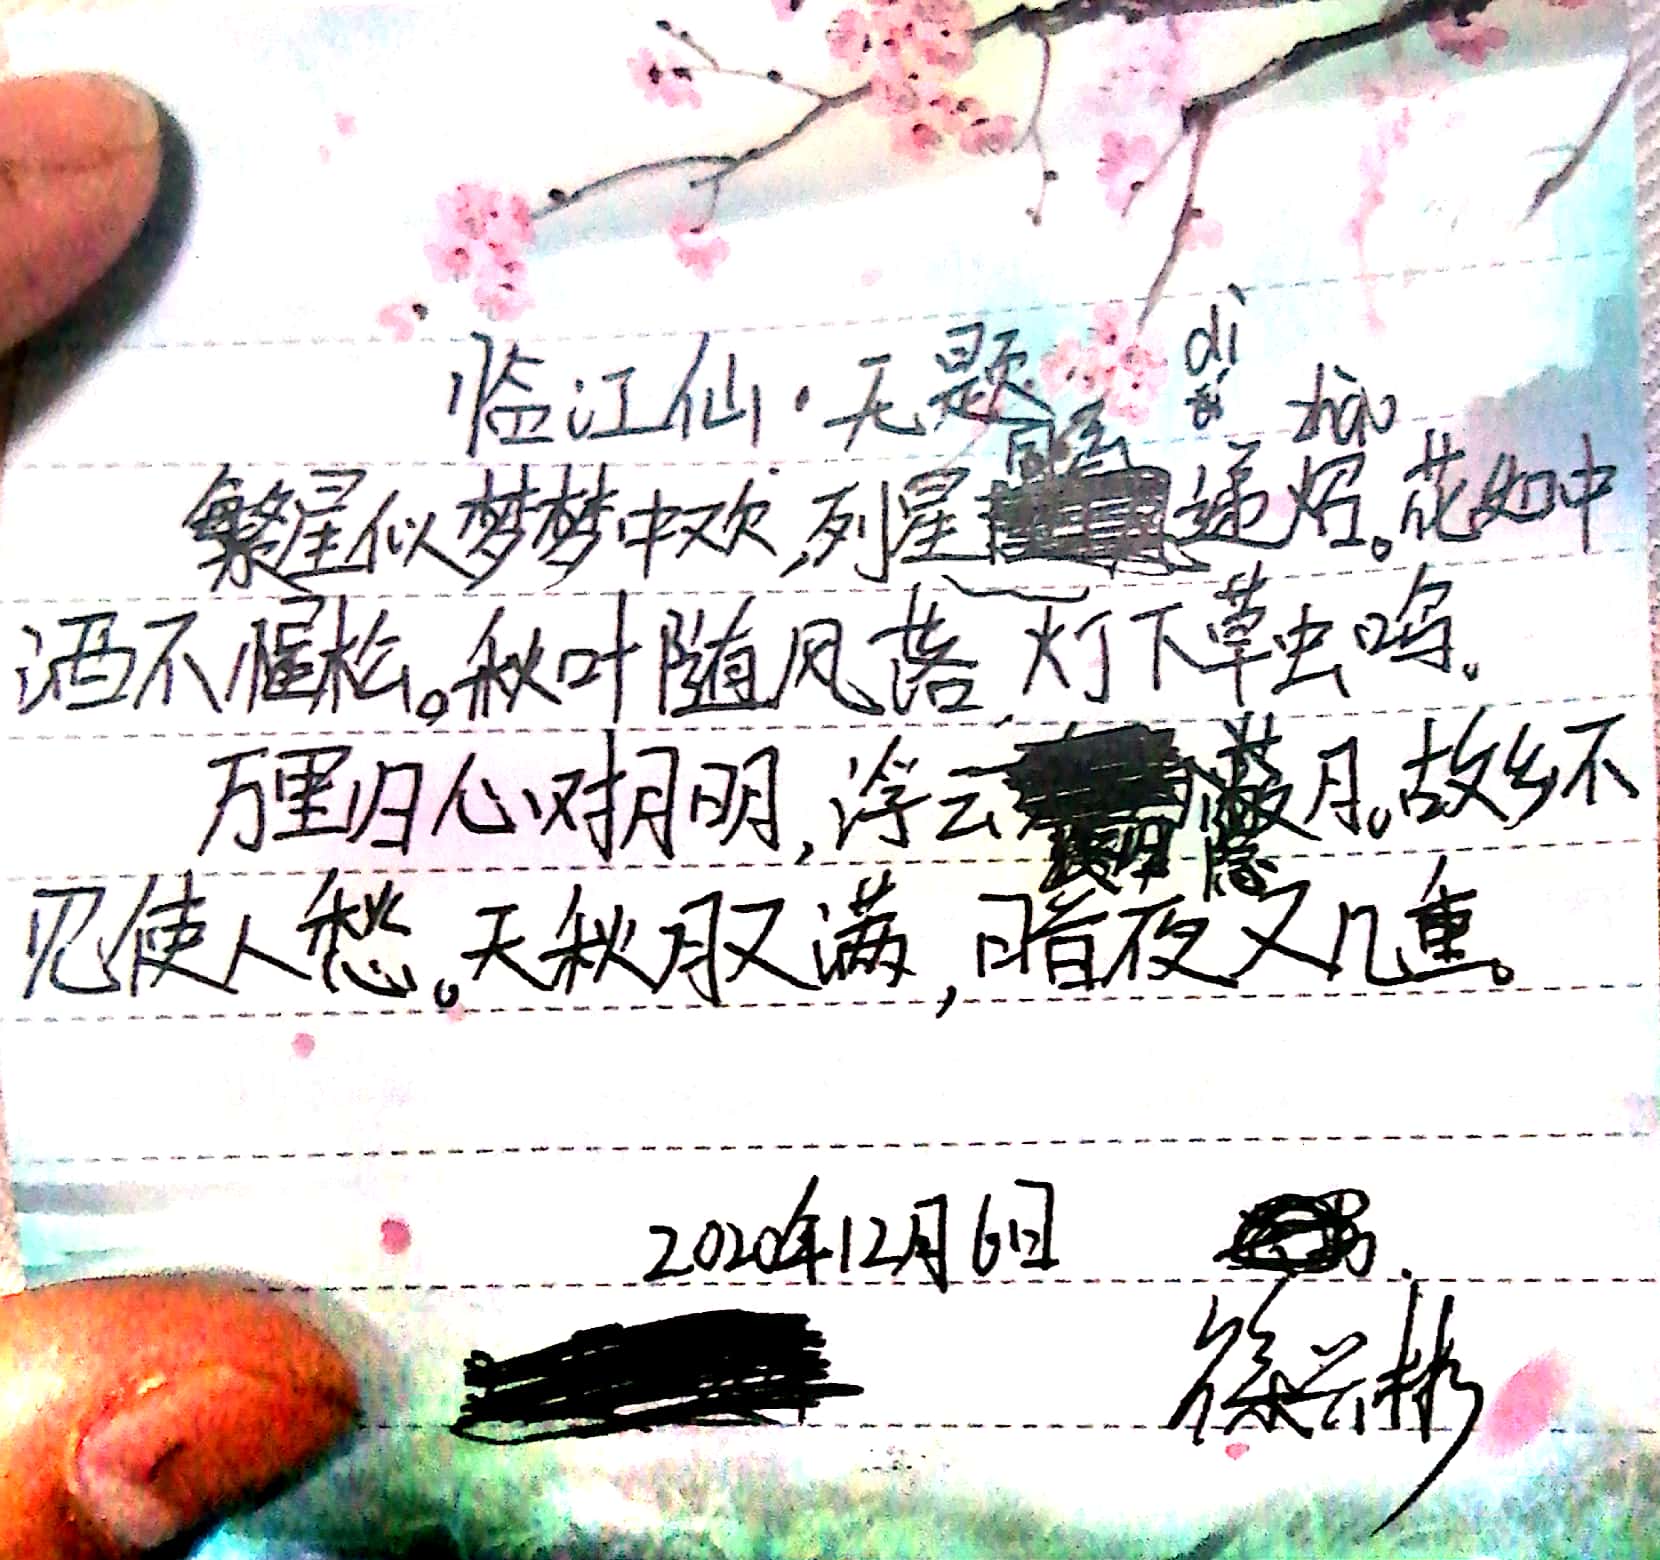 临江仙·无题
di
zhāo
繁星似梦梦中欢,列星随递炤。花如中
酒不惺松。秋叶随风落,灯下草虫鸣。
万里归心对月明,浮云蔽月。故乡不
隐
见使人愁。天秋月又满,暗夜又几重。
2020年12月6日
徐兴彬